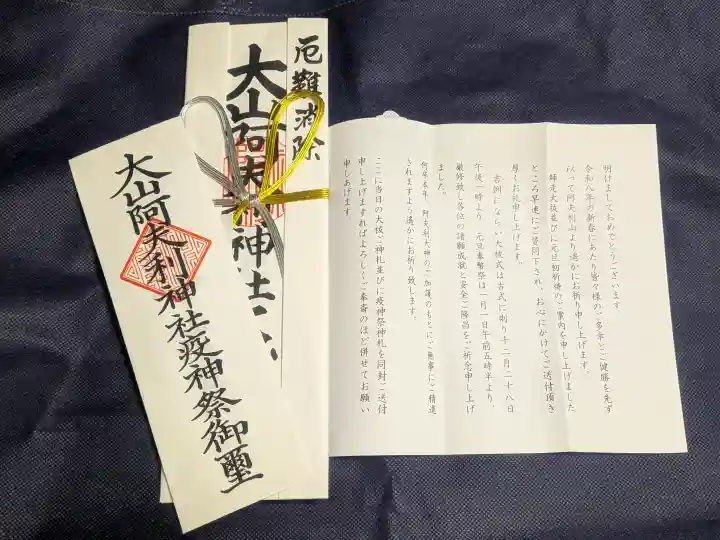 厄難消除
大山阿夫利神社
大山阿夫利神社疫神祭御璽
明けましておめでとうございます
令和八年の新春にあたり皆々様のご多幸とご健勝を先ず
以って阿夫利山より遥かにお祈り申し上げます。
師走大祓並びに元旦初祈祷のご案内を申し上げました
ところ早速にご賛同下され、お心にかけてご送付頂き
厚くお礼申し上げます。
古例にならい大祓式は古式に則り十二月二十八日
午後一時より、元旦奉幣祭は一月一日午前五時半より、
厳修致し各位の諸願成就と安全ご隆昌をご祈念申し上げ
ました。
何卒本年、阿夫利大神のご加護のもとにご無事にご精進
されますよう遥かにお祈り致します。
ここに当日の大祓ご神札並びに疫神祭神札を同封ご送付
申し上げますればよろしくご奉斎のほど併せてお願い
申しあげます。